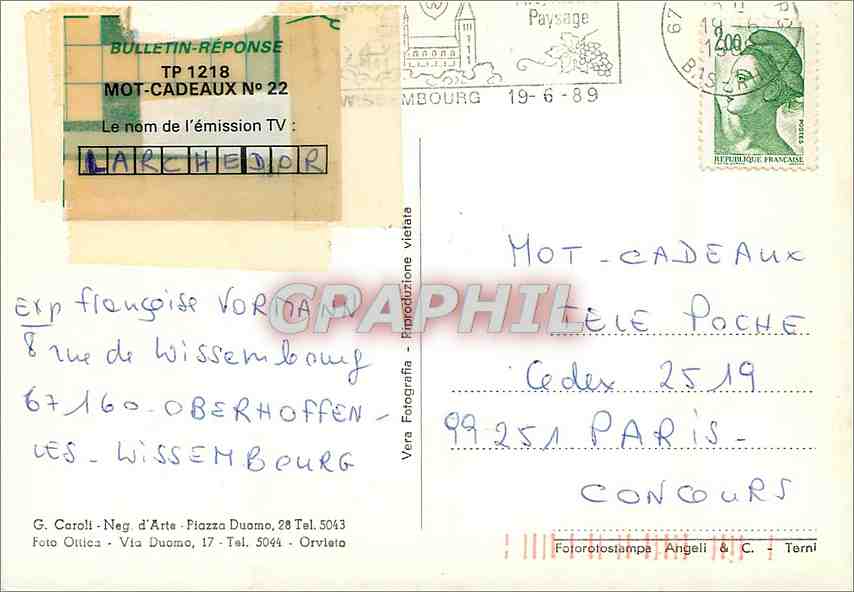 BULLETIN-RÉPONSE
TP 1218
MOT-CADEAUX Nº 22
Le nom de l'émission TV :
LARCHEDOR
Paysage
WISSEMBOURG 19-6-89
67
2,00
POSTES
REPUBLIQUE FRANÇAISE
Exp Françoise VORMANN
8 rue de Wissembourg
67160-OBERHOFFEN-
LES-WISSEMBOURG
G. Caroli - Neg. d'Arte - Piazza Duomo, 28 Tel. 5043
Foto Ottica - Via Duomo, 17 - Tel. 5044 - Orvieto
Vera Fotografia - Riproduzione vietata
MOT-CADEAUX
TELE POCHE
Cedex 2519
99251 PARIS-
CONCOURS
Fotorotostampa Angeli & C. - Terni
CPAPHIL